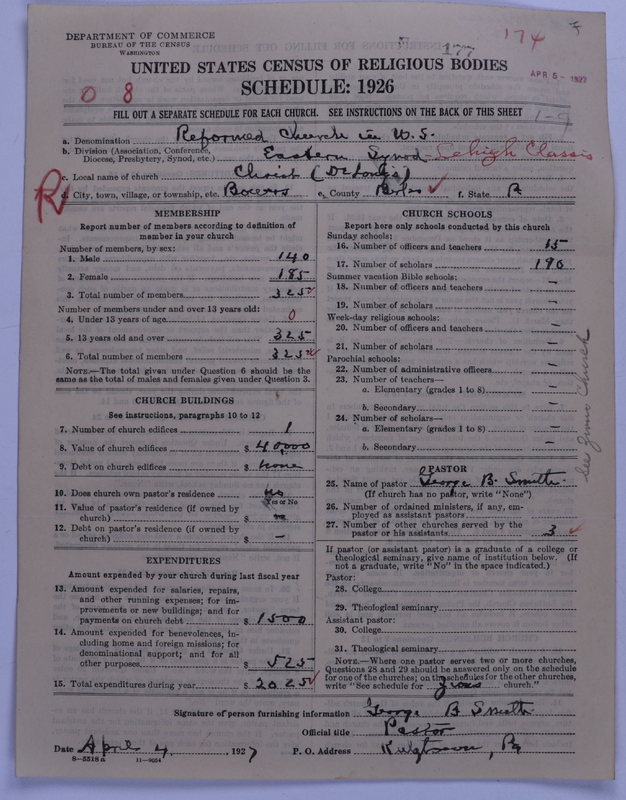 174
177
DEPARTMENT OF COMMERCE
BUREAU OF THE CENSUS
WASHINGTON
UNITED STATES CENSUS OF RELIGIOUS BODIES
APR 5 - 1927
SCHEDULE: 1926
0 8
FILL OUT A SEPARATE SCHEDULE FOR EACH CHURCH. SEE INSTRUCTIONS ON THE BACK OF THIS SHEET
1-9
a. Denomination Reformed Church in U.S.
b. Division (Association, Conference, Diocese, Presbytery, Synod, etc.) Eastern Synod - Lehigh Classis
c. Local name of church Christ (DeLong's)
R
d. City, town, village, or township, etc. Bowers e. County Berks ✓ f. State Pa
MEMBERSHIP
Report number of members according to definition of
member in your church
Number of members, by sex:
1. Male 140
2. Female 185
3. Total number of members 325 ✓
Number of members under and over 13 years old:
4. Under 13 years of age 0
5. 13 years old and over 325
6. Total number of members 325 ✓
NOTE.—The total given under Question 6 should be the
same as the total of males and females given under Question 3.
CHURCH BUILDINGS
See instructions, paragraphs 10 to 12
7. Number of church edifices 1
8. Value of church edifices $ 40,000
9. Debt on church edifices $ none
10. Does church own pastor's residence no
Yes or No
11. Value of pastor's residence (if owned by
church) $ —
12. Debt on pastor's residence (if owned by
church) $ —
EXPENDITURES
Amount expended by your church during last fiscal year
13. Amount expended for salaries, repairs,
and other running expenses; for im-
provements or new buildings; and for
payments on church debt $ 1500
14. Amount expended for benevolences, in-
cluding home and foreign missions; for
denominational support; and for all
other purposes $ 525
15. Total expenditures during year $ 2025 ✓
CHURCH SCHOOLS
Report here only schools conducted by this church
Sunday schools:
16. Number of officers and teachers 15
17. Number of scholars 190
Summer vacation Bible schools:
18. Number of officers and teachers —
19. Number of scholars —
Week-day religious schools:
20. Number of officers and teachers —
21. Number of scholars —
Parochial schools:
22. Number of administrative officers —
23. Number of teachers—
a. Elementary (grades 1 to 8) —
b. Secondary —
24. Number of scholars—
a. Elementary (grades 1 to 8) —
b. Secondary —
See Zions Church
PASTOR
25. Name of pastor George B. Smith
(If church has no pastor, write "None")
26. Number of ordained ministers, if any, em-
ployed as assistant pastors
27. Number of other churches served by the
pastor or his assistants 3 ✓
If pastor (or assistant pastor) is a graduate of a college or
theological seminary, give name of institution below. (If
not a graduate, write "No" in the space indicated.)
Pastor:
28. College
29. Theological seminary
Assistant pastor:
30. College
31. Theological seminary
NOTE.—Where one pastor serves two or more churches,
Questions 28 and 29 should be answered only on the schedule
for one of the churches; on the schedules for the other churches,
write "See schedule for Zions church."
Signature of person furnishing information George B Smith
Official title Pastor
Date April 4, 1927 P. O. Address Kutztown, Pa
8—5518 a 11—9034